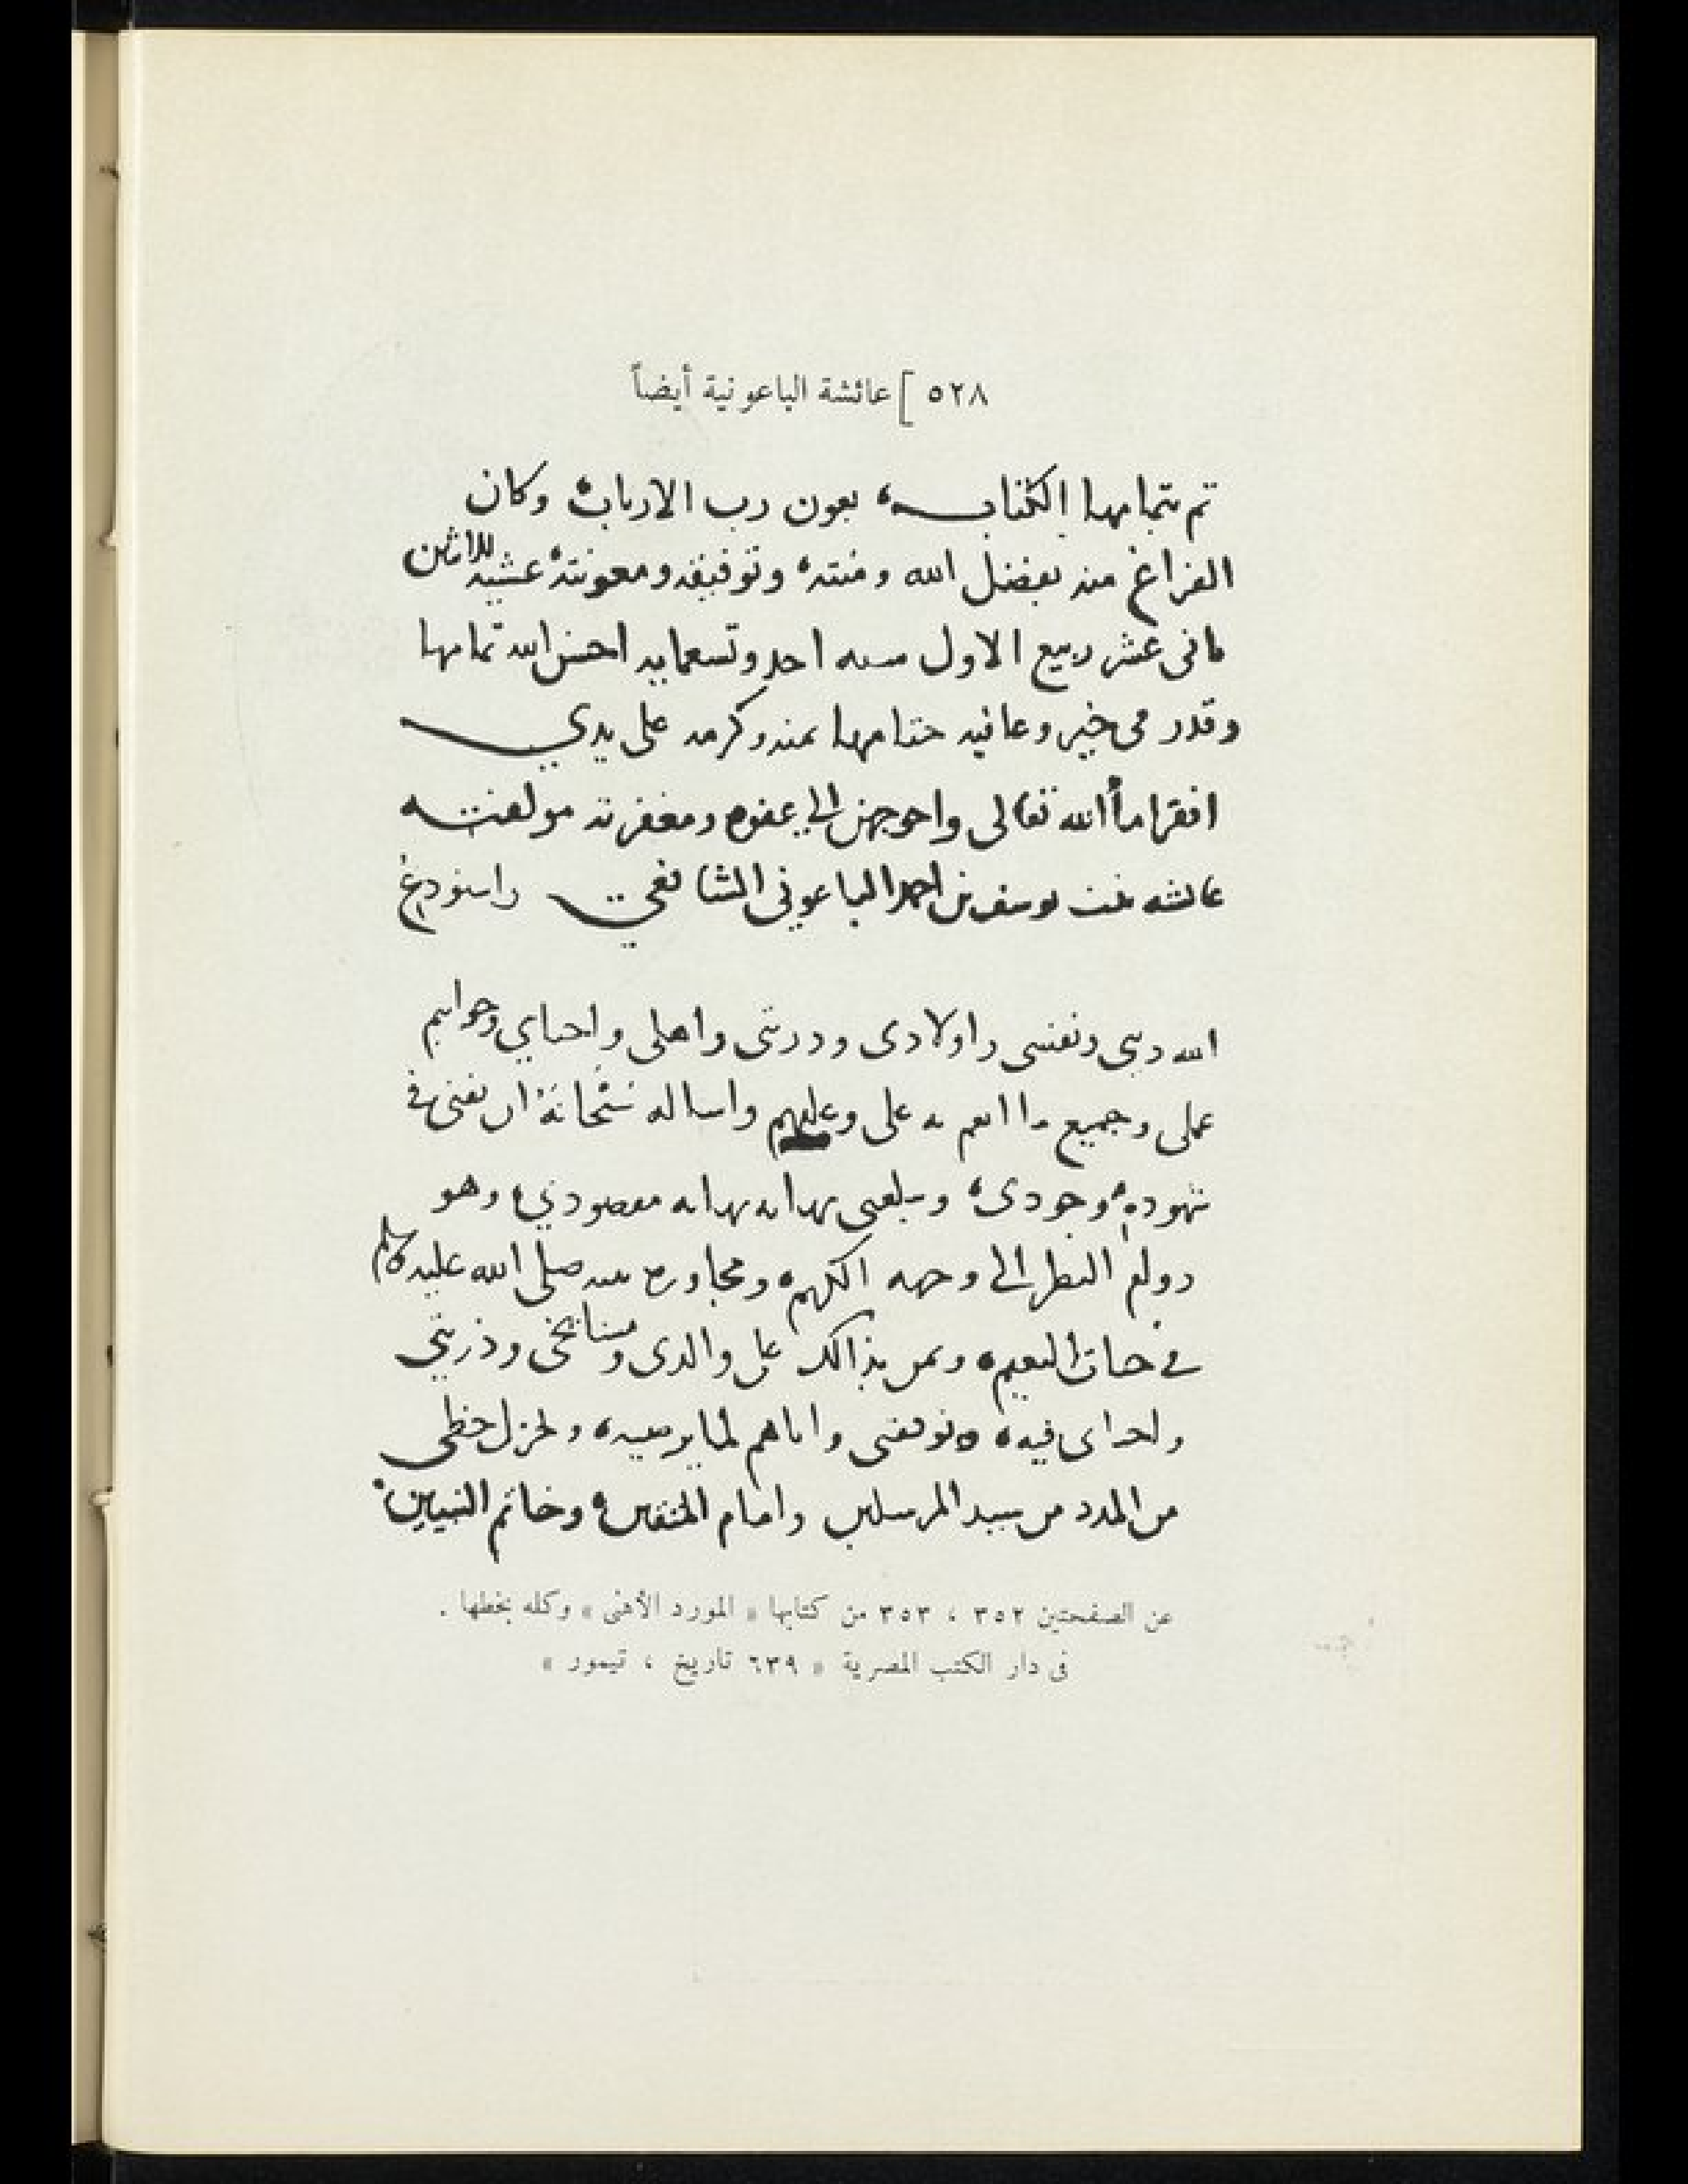 ٥٢٨ [ عائشة الباعونية أيضاً
تم بتمامها الكتاب، بعون رب الارباب، وكان
الفراغ منه بفضل الله ومنته، وتوفيقه ومعونته، عشية الاثنين
ثانى عشر ربيع الاول سنه احد وتسعمايه احسن الله تمامها
وقدر فى خير وعافيه ختامها بمنه وكرمه على يدي
افقر اماء الله تعالى واحوجهن الى عفوه ومغفرته مولفته
عائشه بنت يوسف بن احمد الباعونى الشافعي واستودع
الله دينى ونفسى واولادى وذريتى واهلى واحبابي وخواتيم
عملى وجميع ما انعم به على وعليهم واساله سبحانه ان يفنى فى
شهوده وجودى، ويبلغنى نهاية مقصودي، وهو
دوام النظر الى وجهه الكريم، ومجاورة نبيه صلى الله عليه وسلم
في جنات النعيم، ويمن بذالك على والدى ومشايخى وذريتي
واحبابى فيه، ويوفقنى واياهم لما يرضيه، ويجزل حظى
من المدد من سيد المرسلين وامام المتقين، وخاتم النبيين،
عن الصفحتين ٣٥٢ ، ٣٥٣ من كتابها « المورد الأهنى » وكله بخطها .
فى دار الكتب المصرية « ٦٣٩ تاريخ ، تيمور »